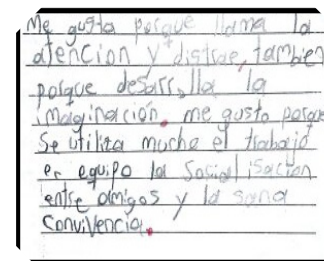 Me gusto porque llama la
atencion y distrae, tambien
porque desarrolla la
imaginación. me gusto porque
Se utiliza mucho el trabajo
en equipo la Socialisación
entre amigos y la sana
Convivencia.